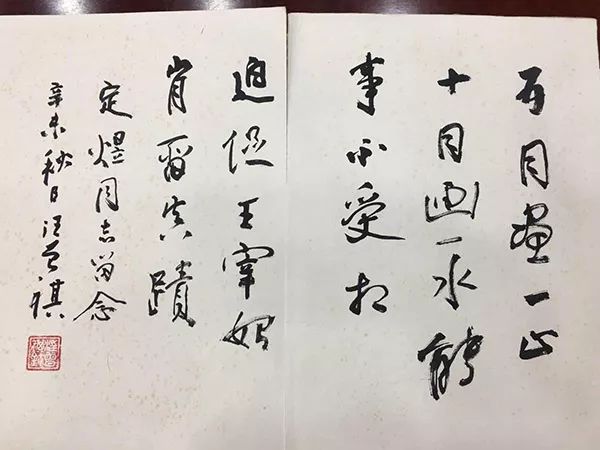 五日畫一山
十日画一水能
事不受相
迫促王宰始
肯留真蹟
定煜同志留念
辛未秋日汪曾祺